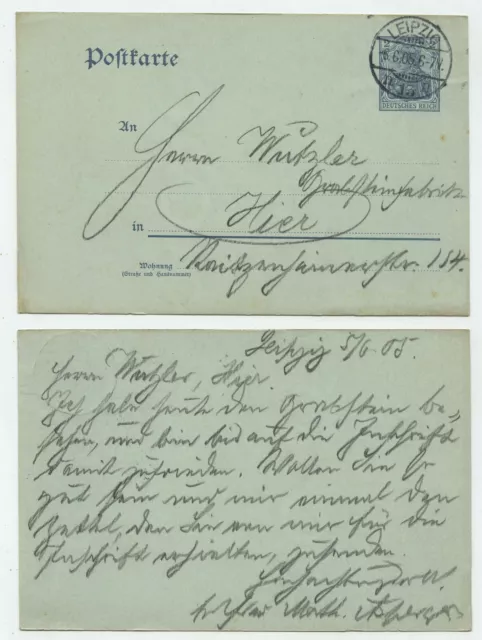 Postkarte
LEIPZIG
6.6.05. 6-7V.
DEUTSCHES REICH
An
Herrn Wutzler
Grabsteinfabrik
in Hier
Wohnung
(Straße und Hausnummer)
Reitzenhainerstr. 154.
Leipzig 5/6 05.
Herrn Wutzler, Hier.
Ich habe heute den Grabstein be-
sehen, und bin bis auf die Inschrift
damit zufrieden. Wollen Sie so
gut sein und mir einmal den
Zettel, den Sie von mir für die
Inschrift erhielten, zusenden.
Hochachtungsvoll
Math.